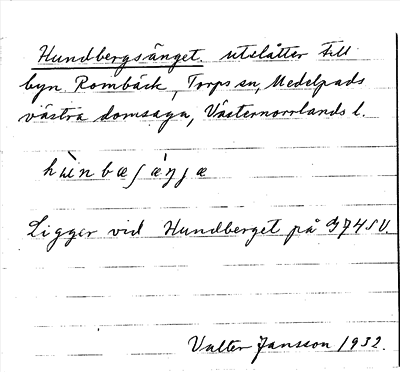 Hundbergsänget. utslåtter till
byn Rombäck, Torps sn, Medelpads
västra domsaga, Västernorrlands l.
hùnbæʃàŋjæ
Ligger vid Hundberget på 974SV.
Valter Jansson 1932.